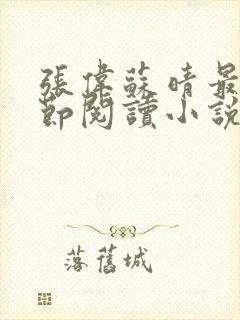 張偉蘇晴最
節閱讀小說
落舊城